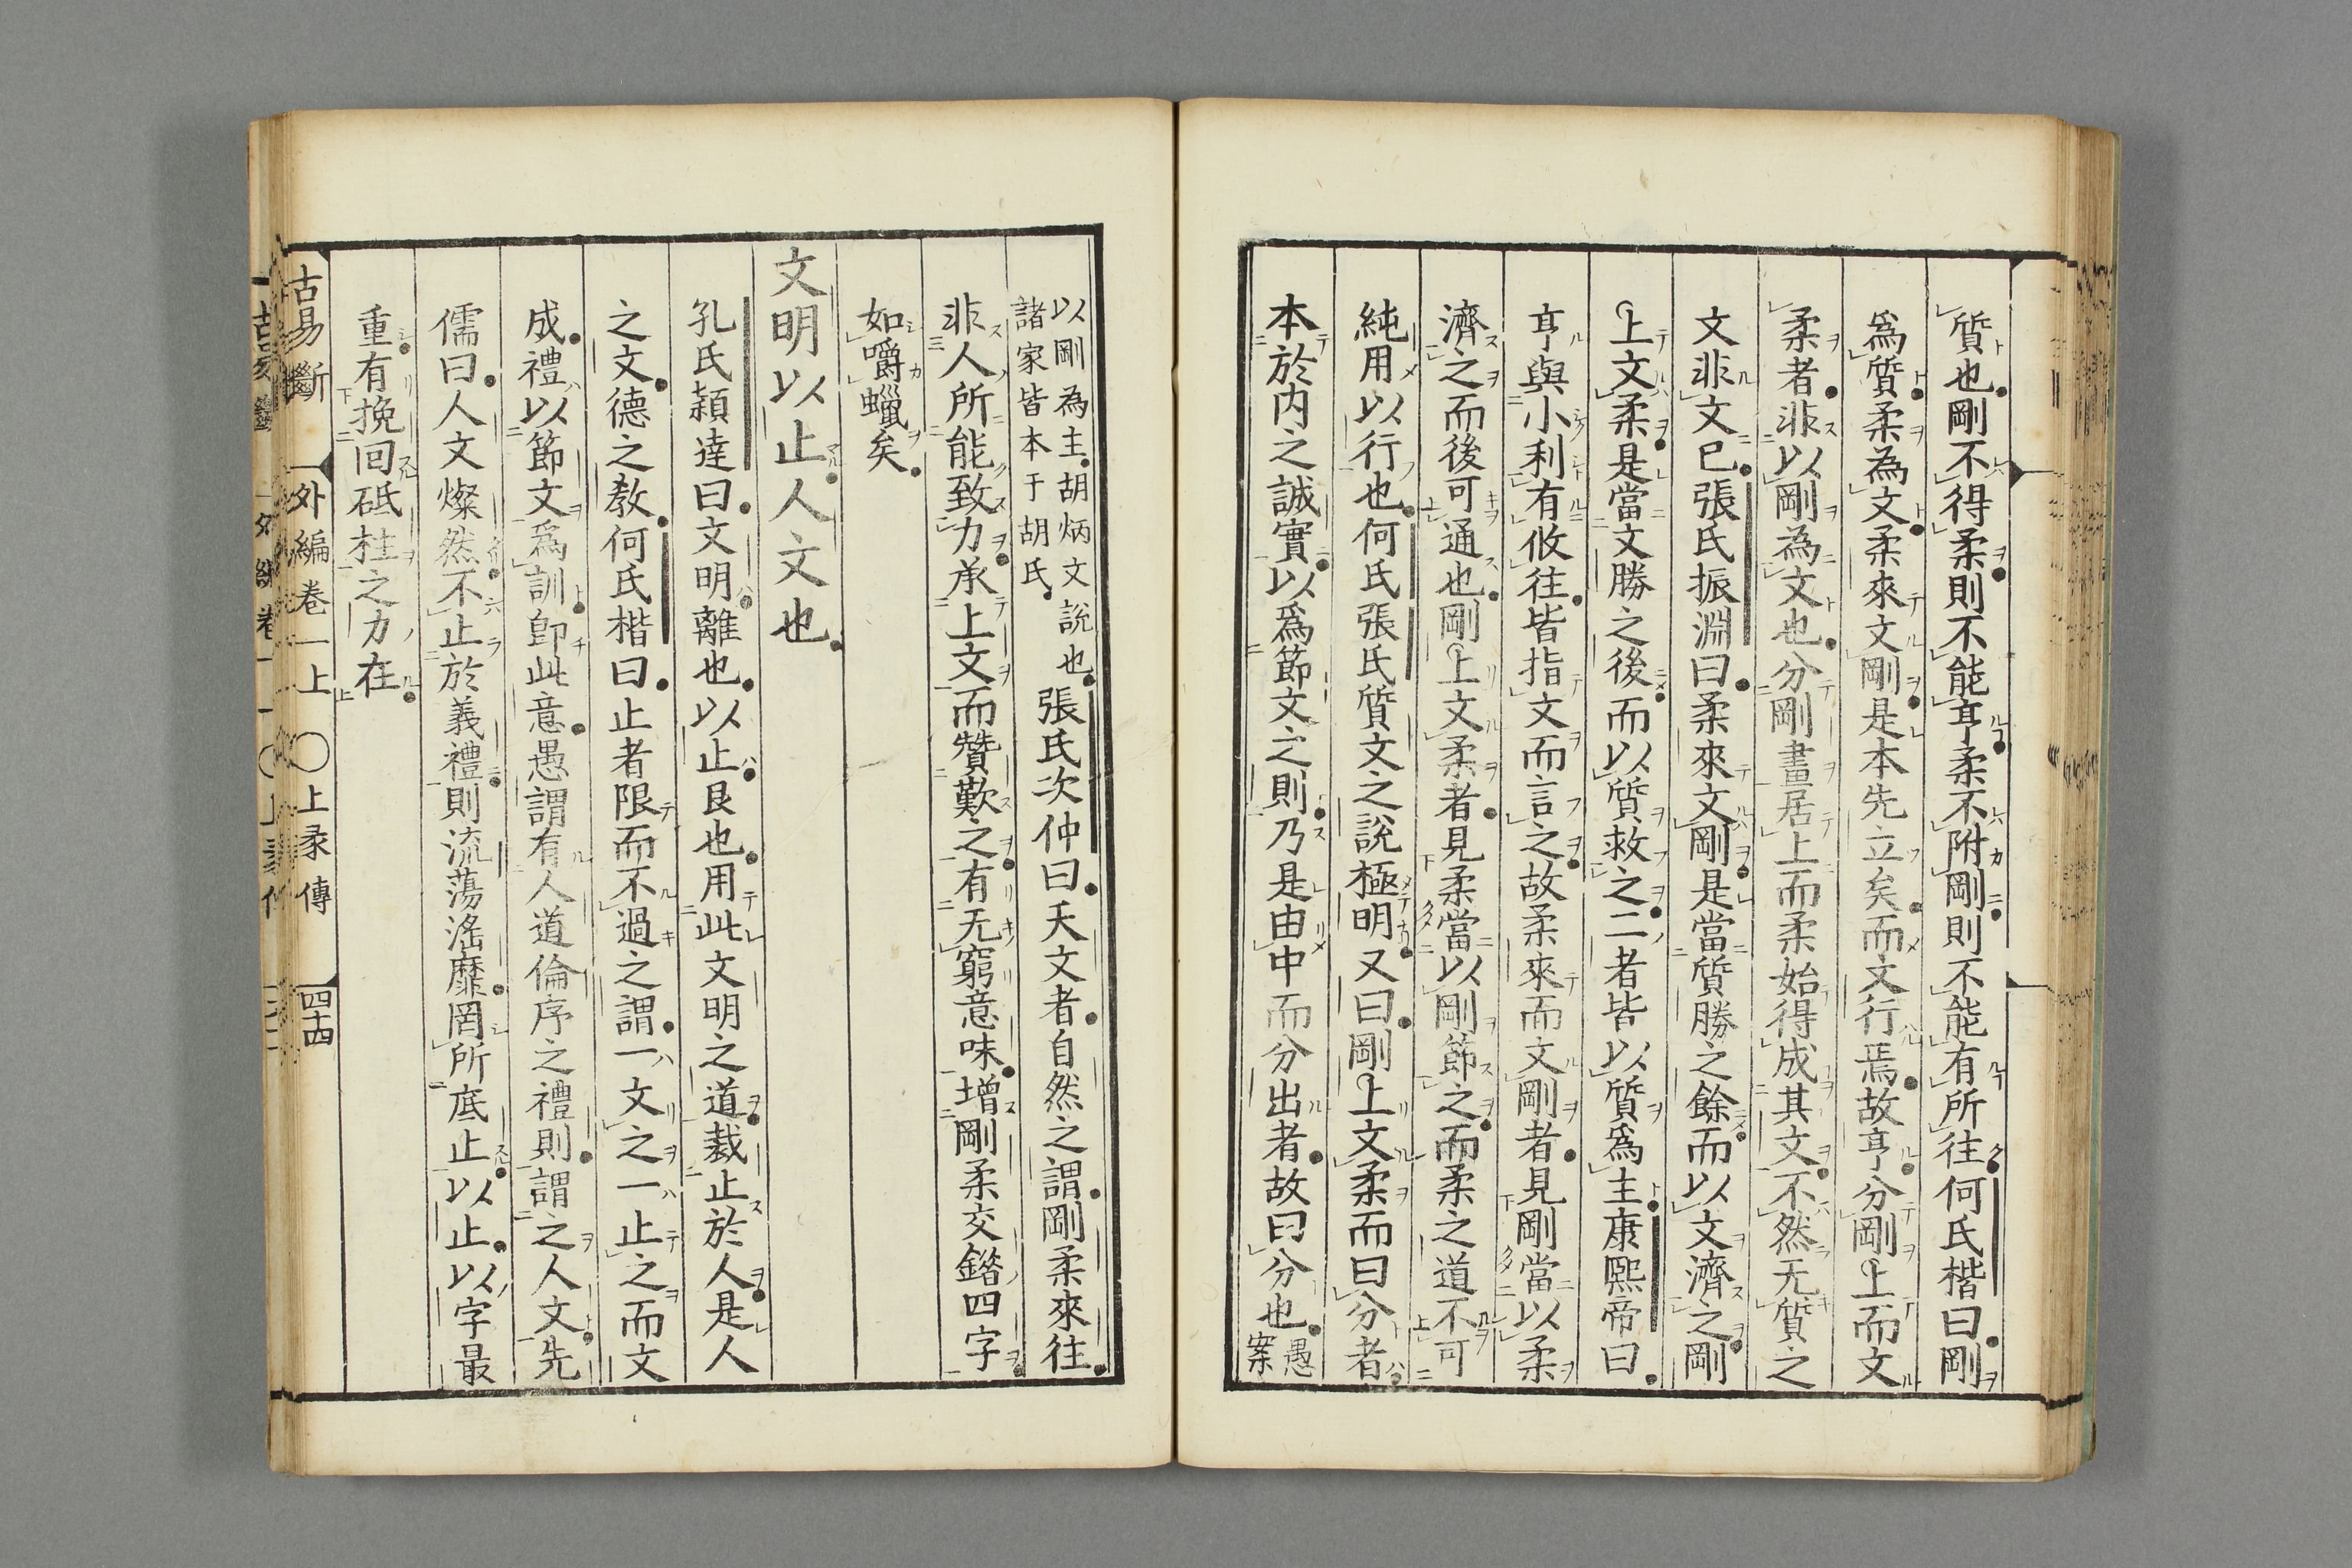 質也剛不得柔則不能亨柔不附剛則不能有所往何氏楷曰剛
為質柔為文柔來文剛是本先立矣而文行焉故亨分剛上而文
柔者非以剛為文也分剛畫居上而柔始得成其文不然无質之
文非文已張氏振淵曰柔來文剛是當質勝之餘而以文濟之剛
上文柔是當文勝之後而以質救之二者皆以質爲主康熙帝曰
亨與小利有攸往皆指文而言之故柔來而文剛者見剛當以柔
濟之而後可通也剛上文柔者見柔當以剛節之而柔之道不可
純用以行也何氏張氏質文之說極明又曰剛上文柔而曰分者
本於内之誠實以爲節文之則乃是由中而分出者故曰分也愚案
以剛為主胡炳文說也
諸家皆本于胡氏
張氏次仲曰天文者自然之謂剛柔來往
非人所能致力承上文而贊歎之有无窮意味增剛柔交錯四字
如嚼蠟矣
文明以止人文也
孔氏頴達曰文明離也以止艮也用此文明之道裁止於人是人
之文德之教何氏楷曰止者限而不過之謂一文之一止之而文
成禮以節文爲訓卽此意愚謂有人道倫序之禮則謂之人文先
儒曰人文燦然不止於義禮則流蕩滛靡罔所底止以止以字最
重有挽回砥柱之力在
古易斷 外編卷一上 ○上彖傳 四十四